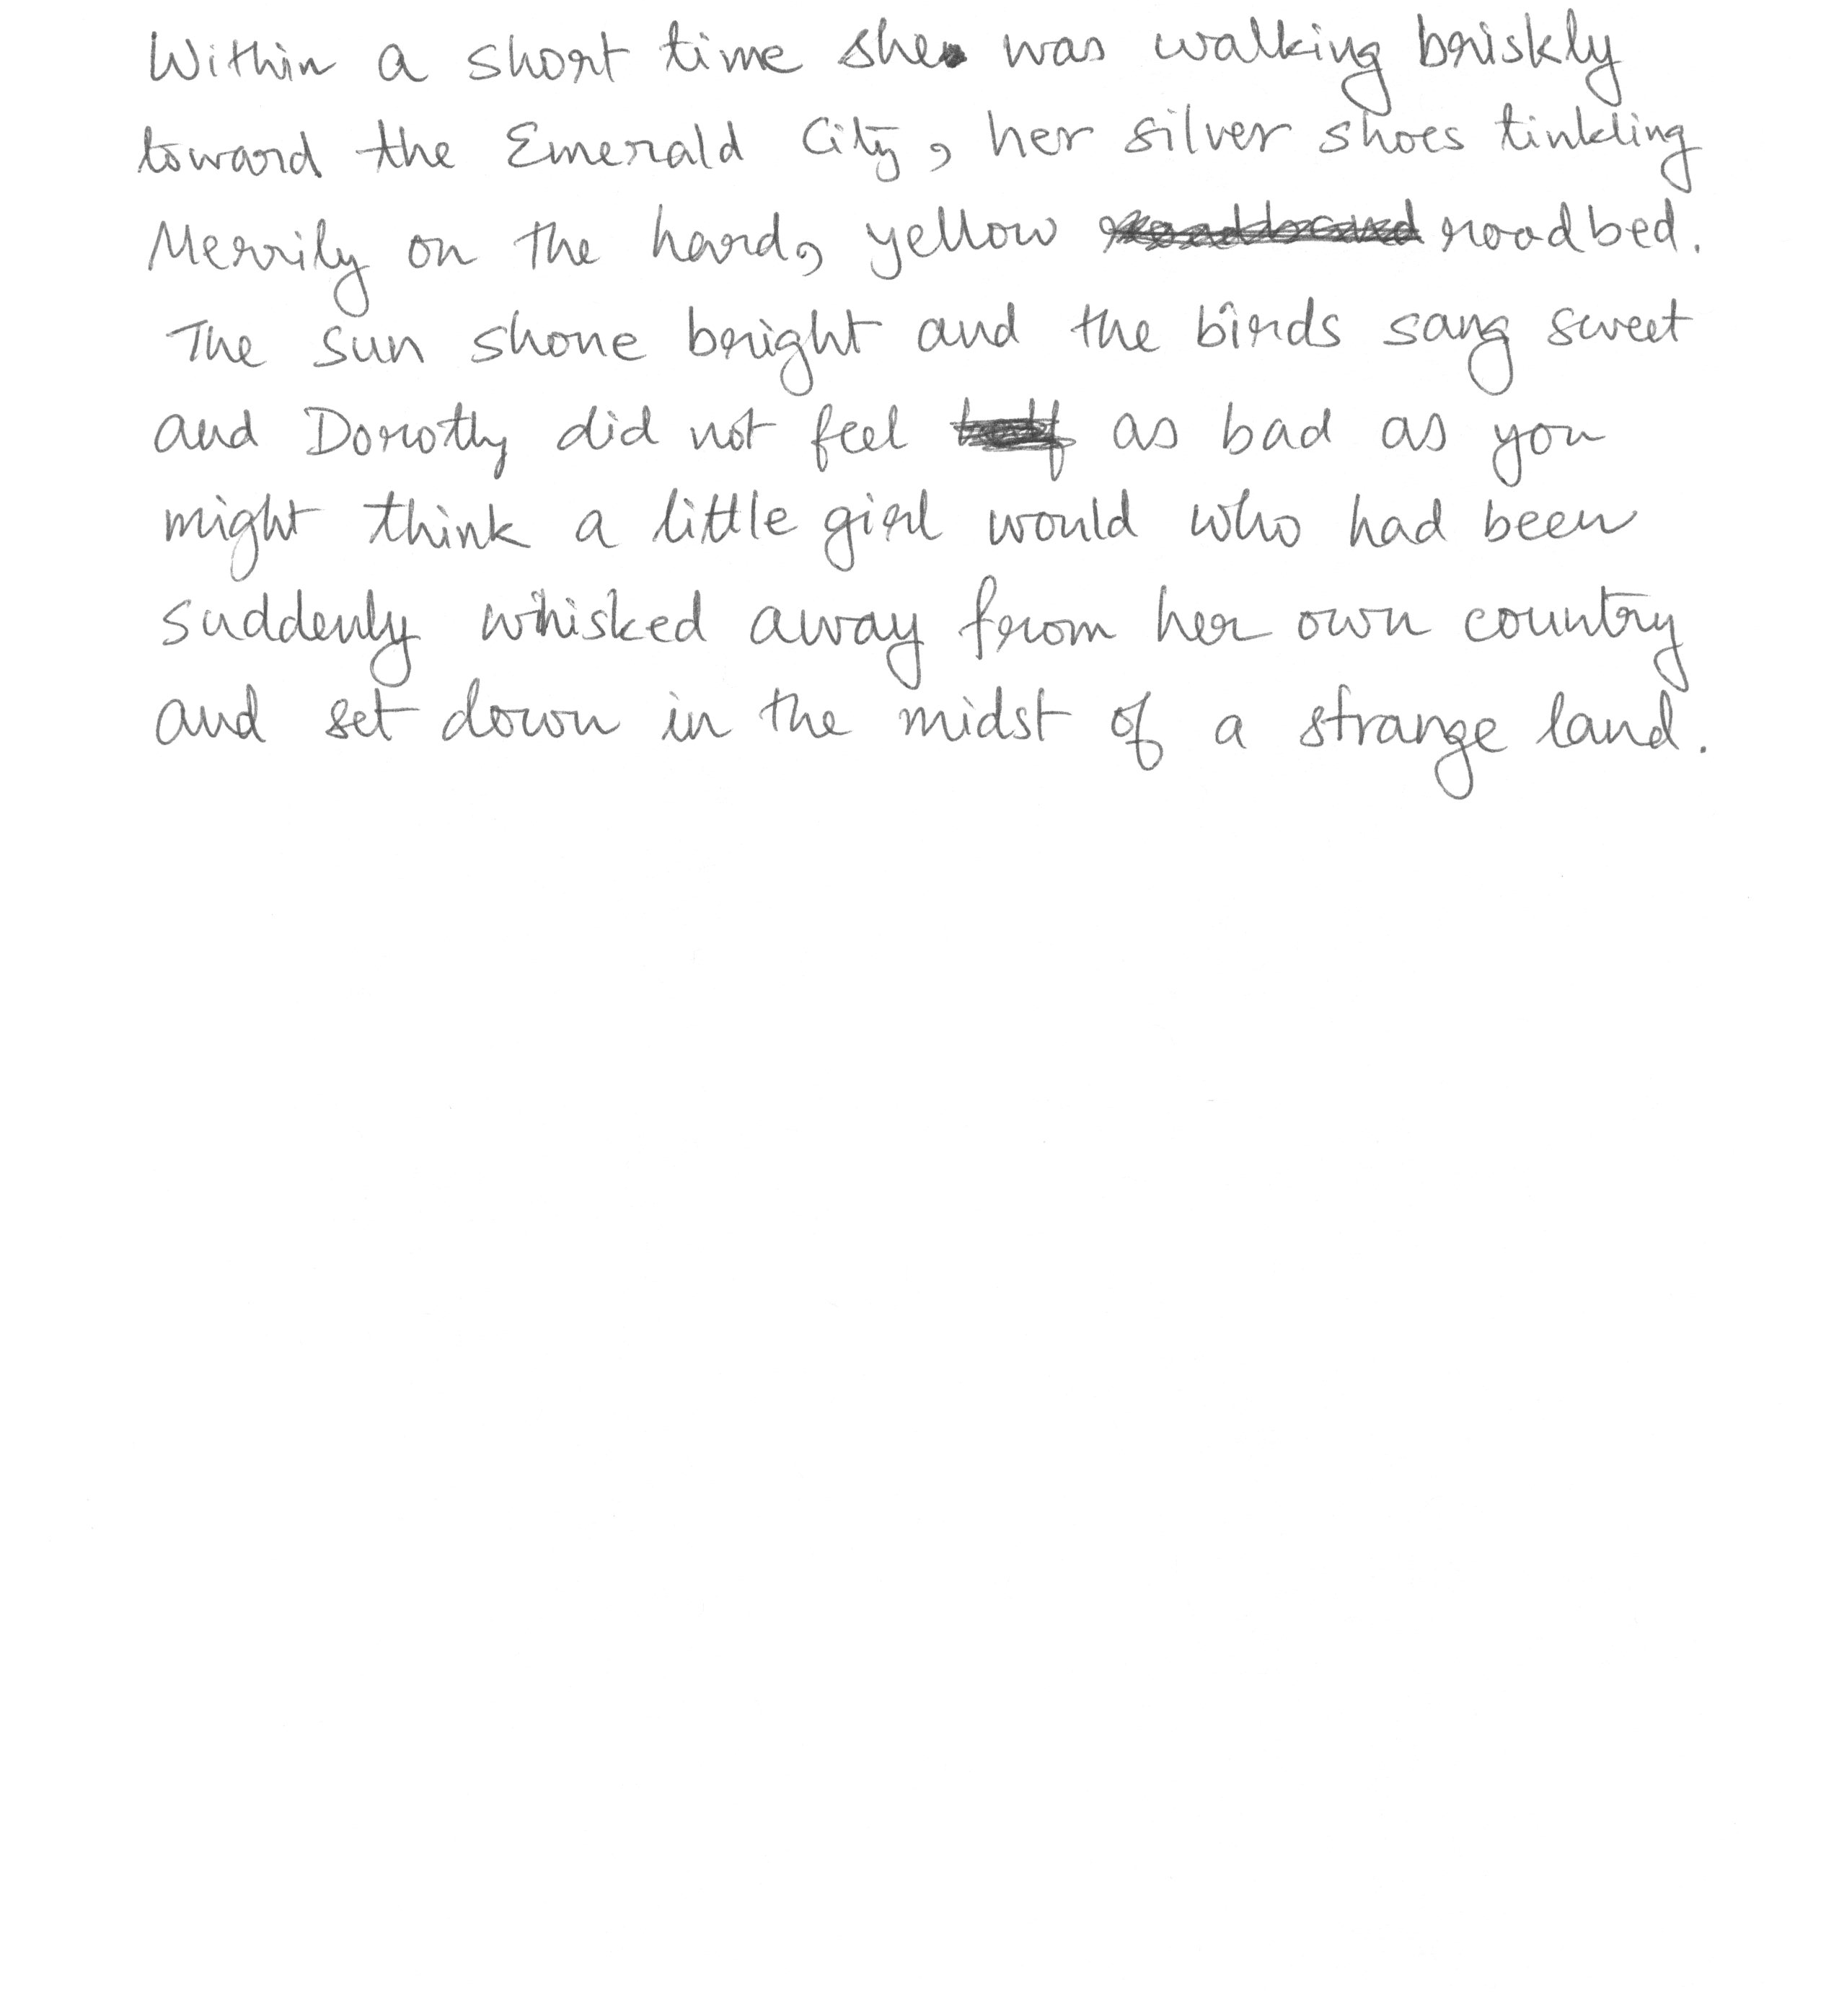 Within a short time she was walking briskly
toward the Emerald City, her silver shoes tinkling
Merrily on the hard, yellow roadbed.
The sun shone bright and the birds sang sweet
and Dorothy did not feel as bad as you
might think a little girl would who had been
suddenly whisked away from her own country
and set down in the midst of a strange land.